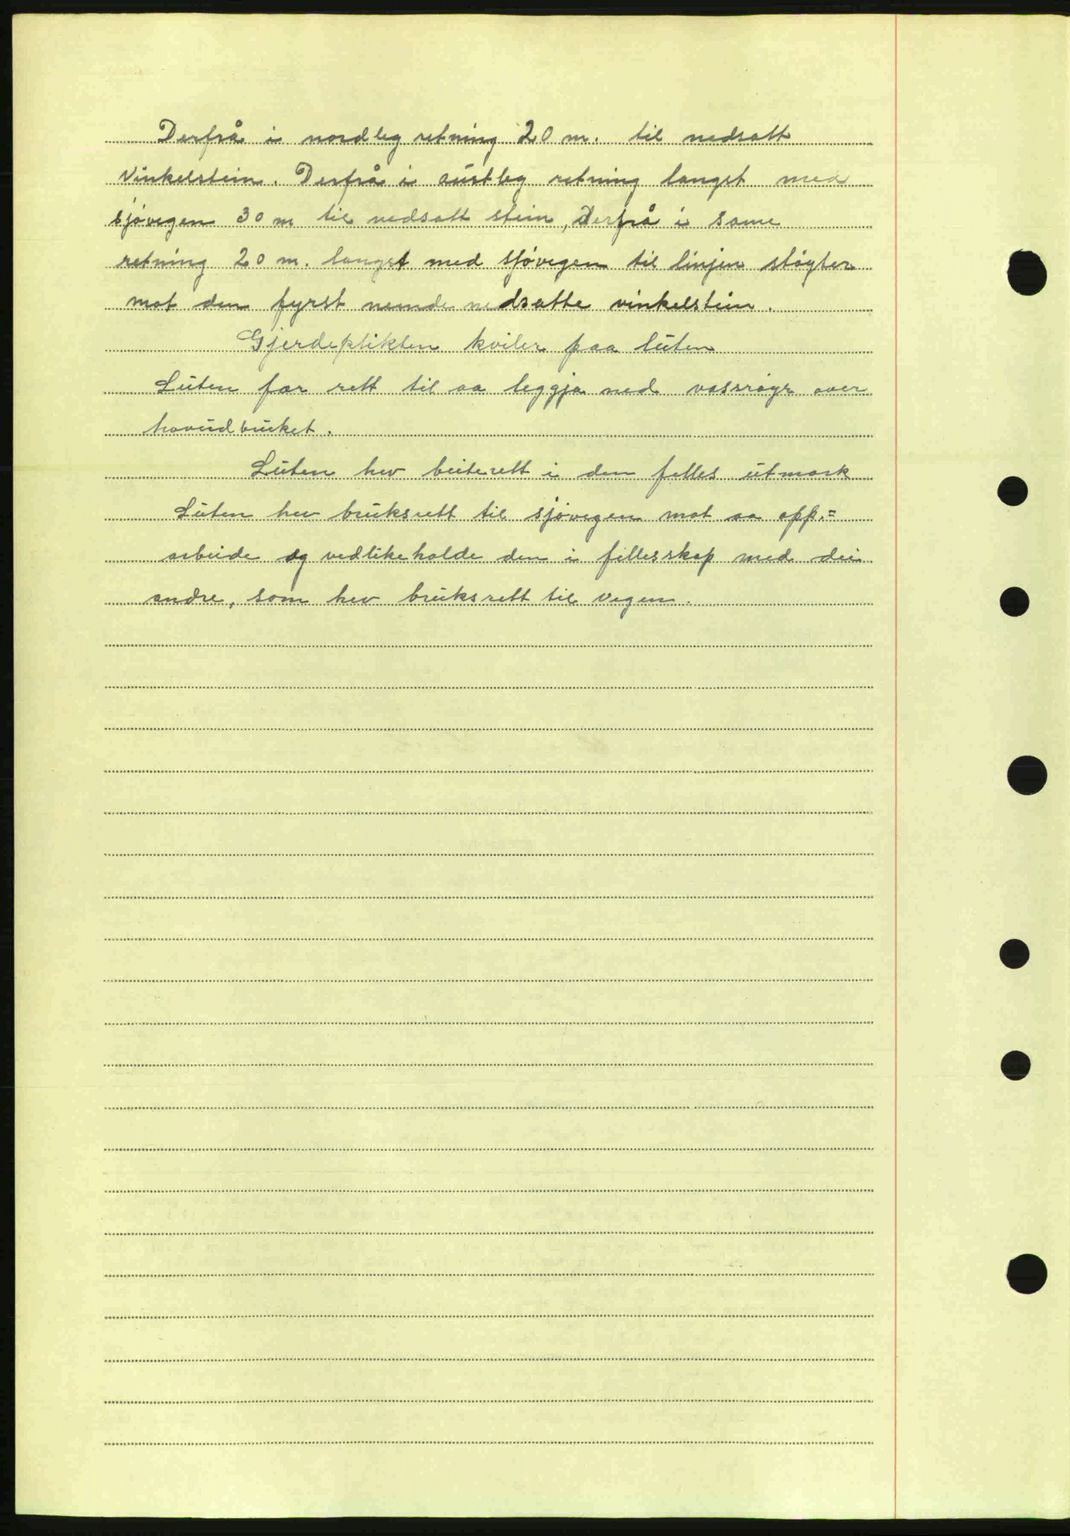 Derfrå i nordleg retning 20 m. til nedsatt
vinkelstein. Derfrå i austleg retning langst med
sjövegen 30 m til nedsatt stein, Derfrå i same
retning 20 m. langst med sjövegen til linjen stöyter
mot den fyrst nemde nedsatte vinkelstein.
Gjerdeplikten kviler paa luten
Luten far rett til aa leggja ned vassröyr over
hovudbruket.
Luten hev beiterett i den felles utmark
Luten hev bruksrett til sjövegen mot aa opp.=
arbeide og vedlikeholde den i fellesskap med dei
andre, som hev bruksrett til vegen.